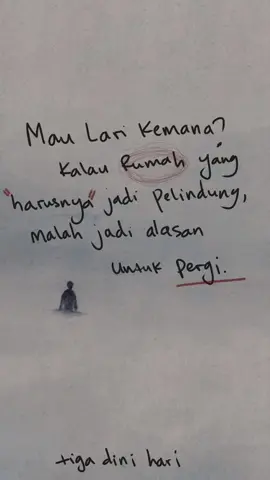 Mau Lari Kemana?
Kalau Rumah yang
"harusnya" jadi pelindung,
malah jadi alasan
untuk pergi.
tiga dini hari